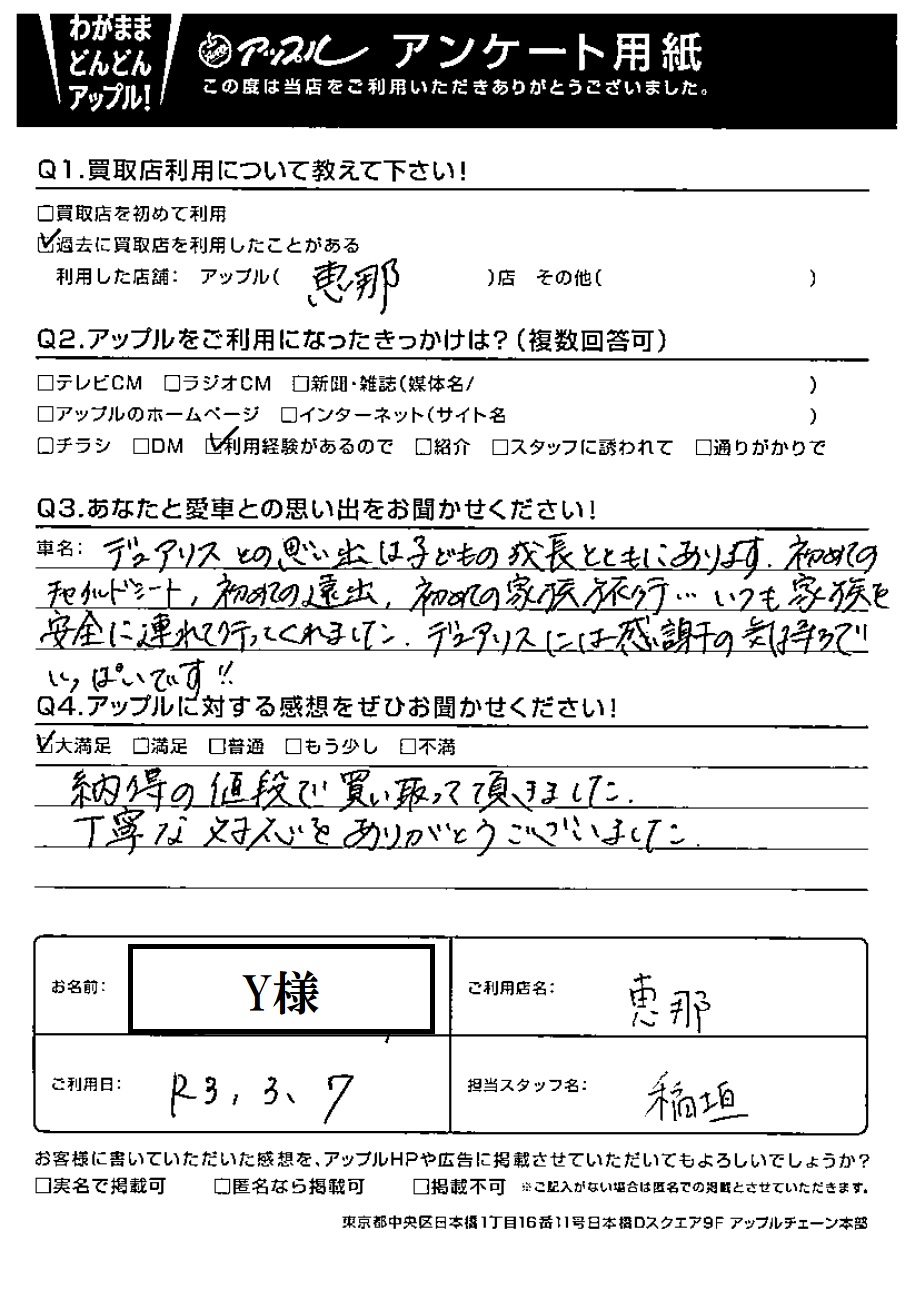 わがまま
どんどん
アップル!
アップル アンケート用紙
この度は当店をご利用いただきありがとうございました。
Q1.買取店利用について教えて下さい!
□買取店を初めて利用
☑過去に買取店を利用したことがある
利用した店舗: アップル( 恵那 )店 その他( )
Q2.アップルをご利用になったきっかけは?(複数回答可)
□テレビCM □ラジオCM □新聞・雑誌(媒体名/ )
□アップルのホームページ □インターネット(サイト名 )
□チラシ □DM ☑利用経験があるので □紹介 □スタッフに誘われて □通りがかりで
Q3.あなたと愛車との思い出をお聞かせください!
車名: デュアリスとの思い出は子どもの成長とともにあります. 初めての
チャイルドシート, 初めての遠出, 初めての家族旅行… いつも家族を
安全に連れて行ってくれました. デュアリスには感謝の気持ちで
いっぱいです!!
Q4.アップルに対する感想をぜひお聞かせください!
☑大満足 □満足 □普通 □もう少し □不満
納得の値段で買い取って頂きました.
丁寧な対応をありがとうございました.
お名前: Y様 ご利用店名: 恵那
ご利用日: R3, 3、7 担当スタッフ名: 稲垣
お客様に書いていただいた感想を、アップルHPや広告に掲載させていただいてもよろしいでしょうか?
□実名で掲載可 □匿名なら掲載可 □掲載不可 ※ご記入がない場合は匿名での掲載とさせていただきます。
東京都中央区日本橋1丁目16番11号日本橋Dスクエア9F アップルチェーン本部